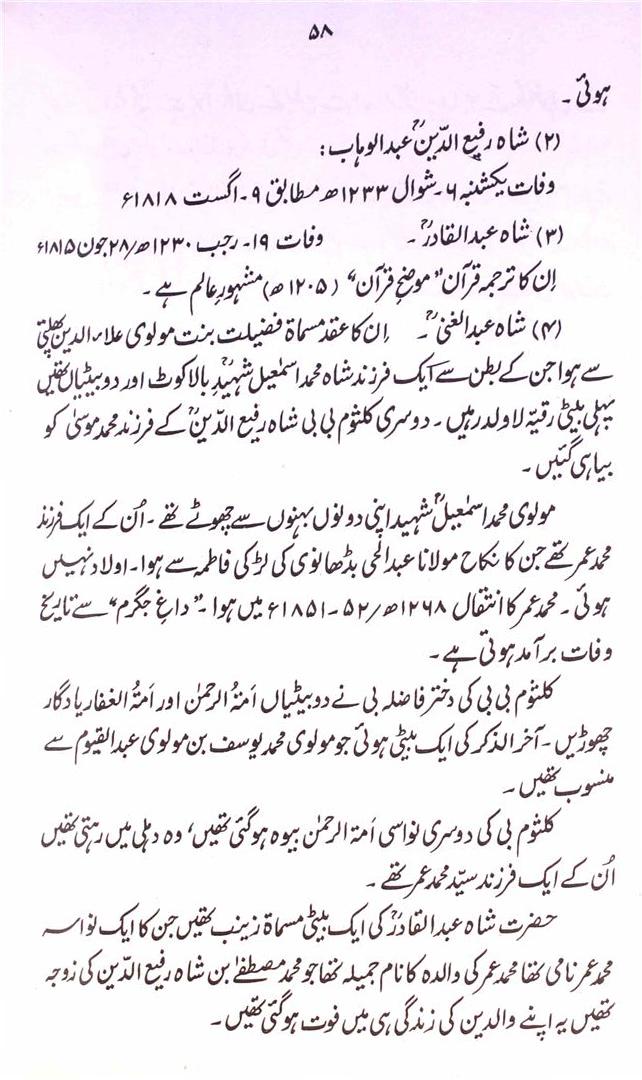 ۵۸
ہوئی ۔
(۲) شاہ رفیع الدّینؒ عبدالوہاب :
وفات یکشنبہ ۶۔ شوال ۱۲۳۳ھ مطابق ۹۔ اگست ۱۸۱۸ء
(۳) شاہ عبدالقادرؒ ۔ وفات ۱۹۔ رجب ۱۲۳۰ھ/۲۸ جون ۱۸۱۵ء
اِن کا ترجمہ قرآن "موضح قرآن" (۱۲۰۵ھ) مشہورِ عالم ہے ۔
(۴) شاہ عبدالغنیؒ ۔ اِن کا عقد مسماۃ فضیلت بنت مولوی علاء الدین پھلتی
سے ہوا جن کے بطن سے ایک فرزند شاہ محمد اسمٰعیل شہیدؒ بالاکوٹ اور دو بیٹیاں تھیں
پہلی بیٹی رقیہ لاولد رہیں ۔ دوسری کلثوم بی بی شاہ رفیع الدّینؒ کے فرزند محمد موسیٰ کو
بیاہی گئیں ۔
مولوی محمد اسمٰعیلؒ شہید اپنی دونوں بہنوں سے چھوٹے تھے ۔ اُن کے ایک فرزند
محمد عمر تھے جن کا نکاح مولانا عبدالحی بڈھانوی کی لڑکی فاطمہ سے ہوا ۔ اولاد نہیں
ہوئی ۔ محمد عمر کا انتقال ۱۲۶۸ھ/۵۲۔۱۸۵۱ء میں ہوا ۔ "داغِ جگرم" سے تاریخ
وفات برآمد ہوتی ہے ۔
کلثوم بی بی کی دختر فاضلہ بی نے دو بیٹیاں اَمتہُ الرحمٰن اور اَمتہُ الغفار یادگار
چھوڑیں ۔ آخر الذکر کی ایک بیٹی ہوئی جو مولوی محمد یوسف بن مولوی عبدالقیوم سے
منسوب تھیں ۔
کلثوم بی کی دوسری نواسی اَمتہ الرحمٰن بیوہ ہوگئی تھیں، وہ دہلی میں رہتی تھیں
اُن کے ایک فرزند سیّد محمد عمر تھے ۔
حضرت شاہ عبدالقادرؒ کی ایک بیٹی مسماۃ زینب تھیں جن کا ایک نواسہ
محمد عمر نامی تھا محمد عمر کی والدہ کا نام جمیلہ تھا جو محمد مصطفےٰ بن شاہ رفیع الدّین کی زوجہ
تھیں یہ اپنے والدین کی زندگی ہی میں فوت ہوگئی تھیں ۔